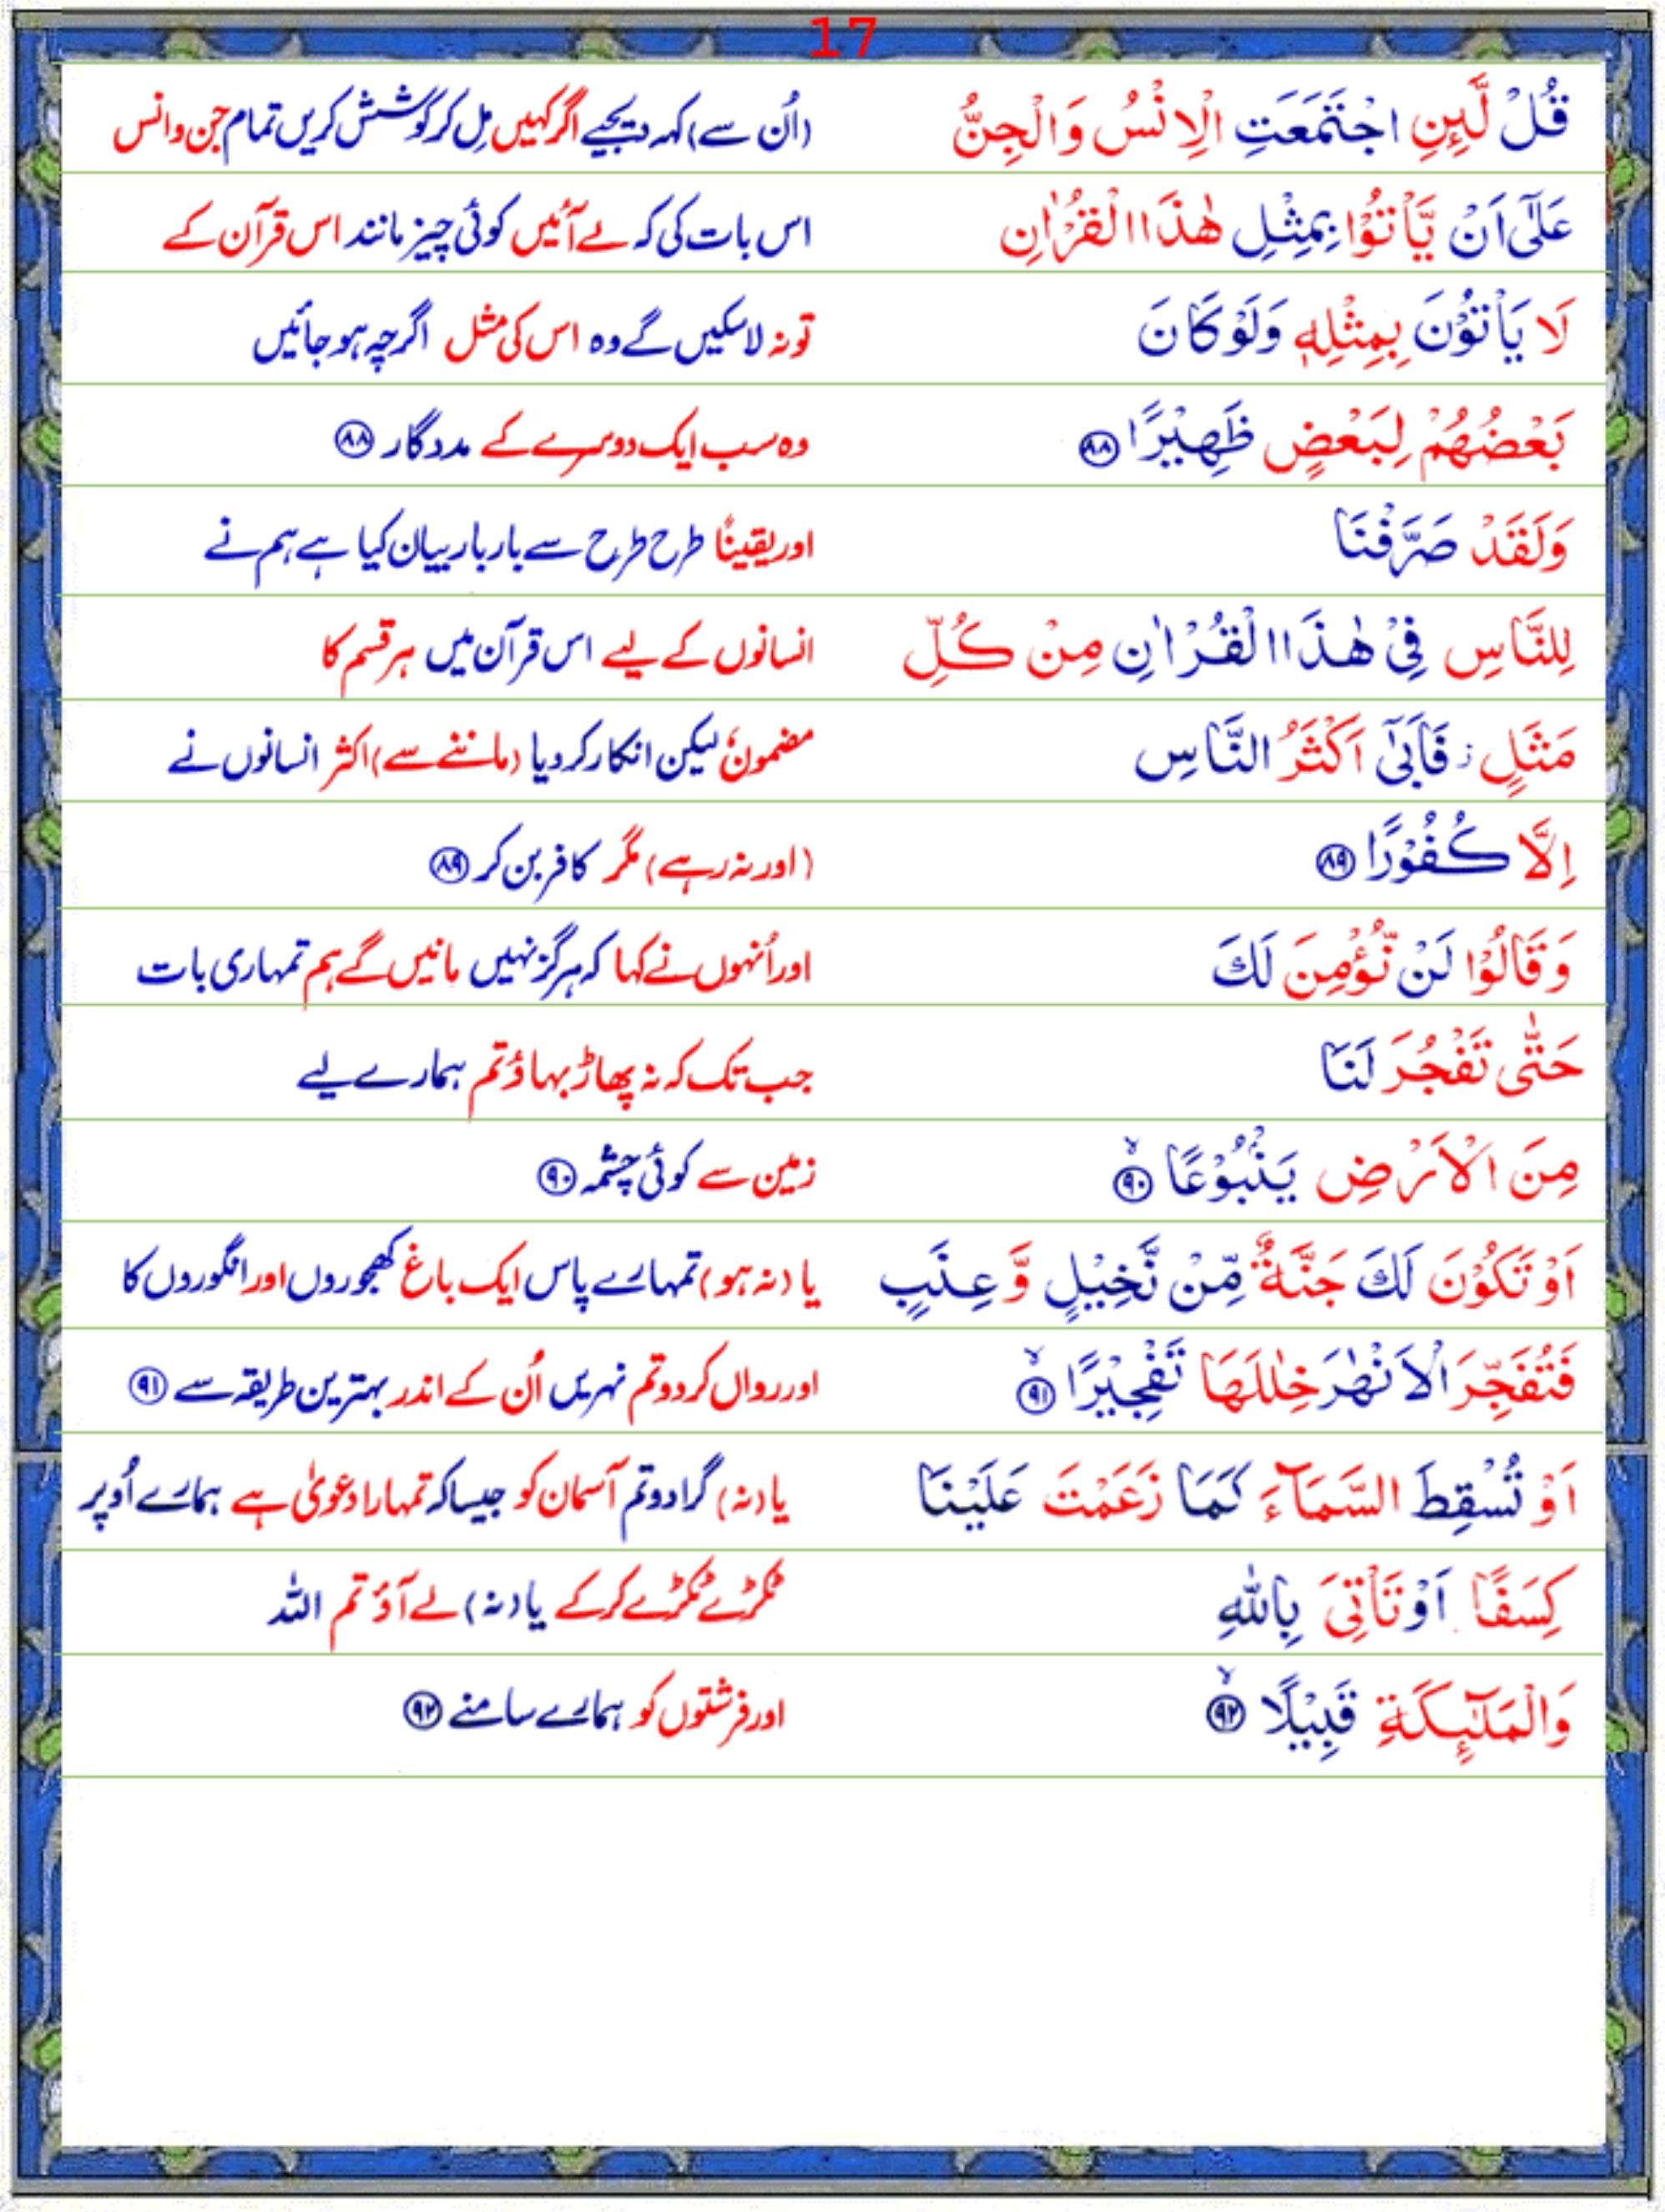 17
قُلْ لَّئِنِ اجْتَمَعَتِ الْاِنْسُ وَالْجِنُّ (اُن سے) کہہ دیجیے اگر کہیں مِل کر کوشش کریں تمام جن وانس
عَلٰٓى اَنْ يَّاْتُوْا بِمِثْلِ هٰذَا الْقُرْاٰنِ اس بات کی کہ لے آئیں کوئی چیز مانند اس قرآن کے
لَا يَاْتُوْنَ بِمِثْلِهٖ وَلَوْ كَانَ تو نہ لاسکیں گے وہ اس کی مثل اگرچہ ہو جائیں
بَعْضُهُمْ لِبَعْضٍ ظَهِيْرًا ﴿۸۸﴾ وہ سب ایک دوسرے کے مددگار ﴿۸۸﴾
وَلَقَدْ صَرَّفْنَا اور یقیناً طرح طرح سے بار بار بیان کیا ہے ہم نے
لِلنَّاسِ فِىْ هٰذَا الْقُرْاٰنِ مِنْ كُلِّ انسانوں کے لیے اس قرآن میں ہر قسم کا
مَثَلٍ ز فَاَبٰٓى اَكْثَرُ النَّاسِ مضمون، لیکن انکار کر دیا (ماننے سے) اکثر انسانوں نے
اِلَّا كُفُوْرًا ﴿۸۹﴾ (اور نہ رہے) مگر کافر بن کر ﴿۸۹﴾
وَقَالُوْا لَنْ نُّؤْمِنَ لَكَ اور اُنہوں نے کہا کہ ہرگز نہیں مانیں گے ہم تمہاری بات
حَتّٰى تَفْجُرَ لَنَا جب تک کہ نہ پھاڑ بہاؤ تم ہمارے لیے
مِنَ الْاَرْضِ يَنْۢبُوْعًا ﴿۹۰﴾ۙ زمین سے کوئی چشمہ ﴿۹۰﴾
اَوْ تَكُوْنَ لَكَ جَنَّةٌ مِّنْ نَّخِيْلٍ وَّعِنَبٍ یا (نہ ہو) تمہارے پاس ایک باغ کھجوروں اور انگوروں کا
فَتُفَجِّرَ الْاَنْهٰرَ خِلٰلَهَا تَفْجِيْرًا ﴿۹۱﴾ۙ اور رواں کردو تم نہریں اُن کے اندر بہترین طریقہ سے ﴿۹۱﴾
اَوْ تُسْقِطَ السَّمَآءَ كَمَا زَعَمْتَ عَلَيْنَا یا (نہ) گرا دو تم آسمان کو جیسا کہ تمہارا دعویٰ ہے ہمارے اُوپر
كِسَفًا اَوْ تَاْتِىَ بِاللّٰهِ ٹکڑے ٹکڑے کرکے یا (نہ) لے آؤ تم اللہ
وَالْمَلٰٓئِكَةِ قَبِيْلًا ﴿۹۲﴾ۙ اور فرشتوں کو ہمارے سامنے ﴿۹۲﴾